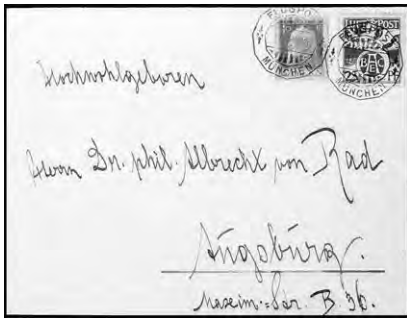 FLUGPOST
MÜNCHEN
FLUGPOST
MÜNCHEN
Hochwohlgeboren
Herrn Dr. phil. Albrecht von Rad
Augsburg.
B. 36.